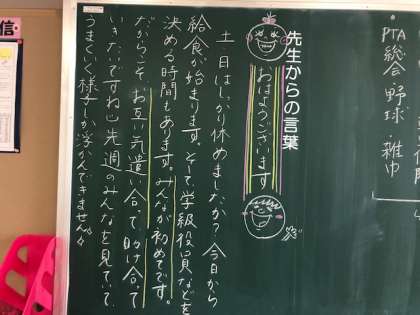 PTA 総会 野球 雑巾
先生からの言葉
おはようございます
土日はしっかり休めましたか?今日から
給食が始まります。そして学級役員などを
決める時間もあります。みんなが初めてです。
だからこそ、お互い気遣い合って、助け合って
いきたいですね!!先週のみんなを見ていて、
うまくいく様子しか浮かんできません!!
信